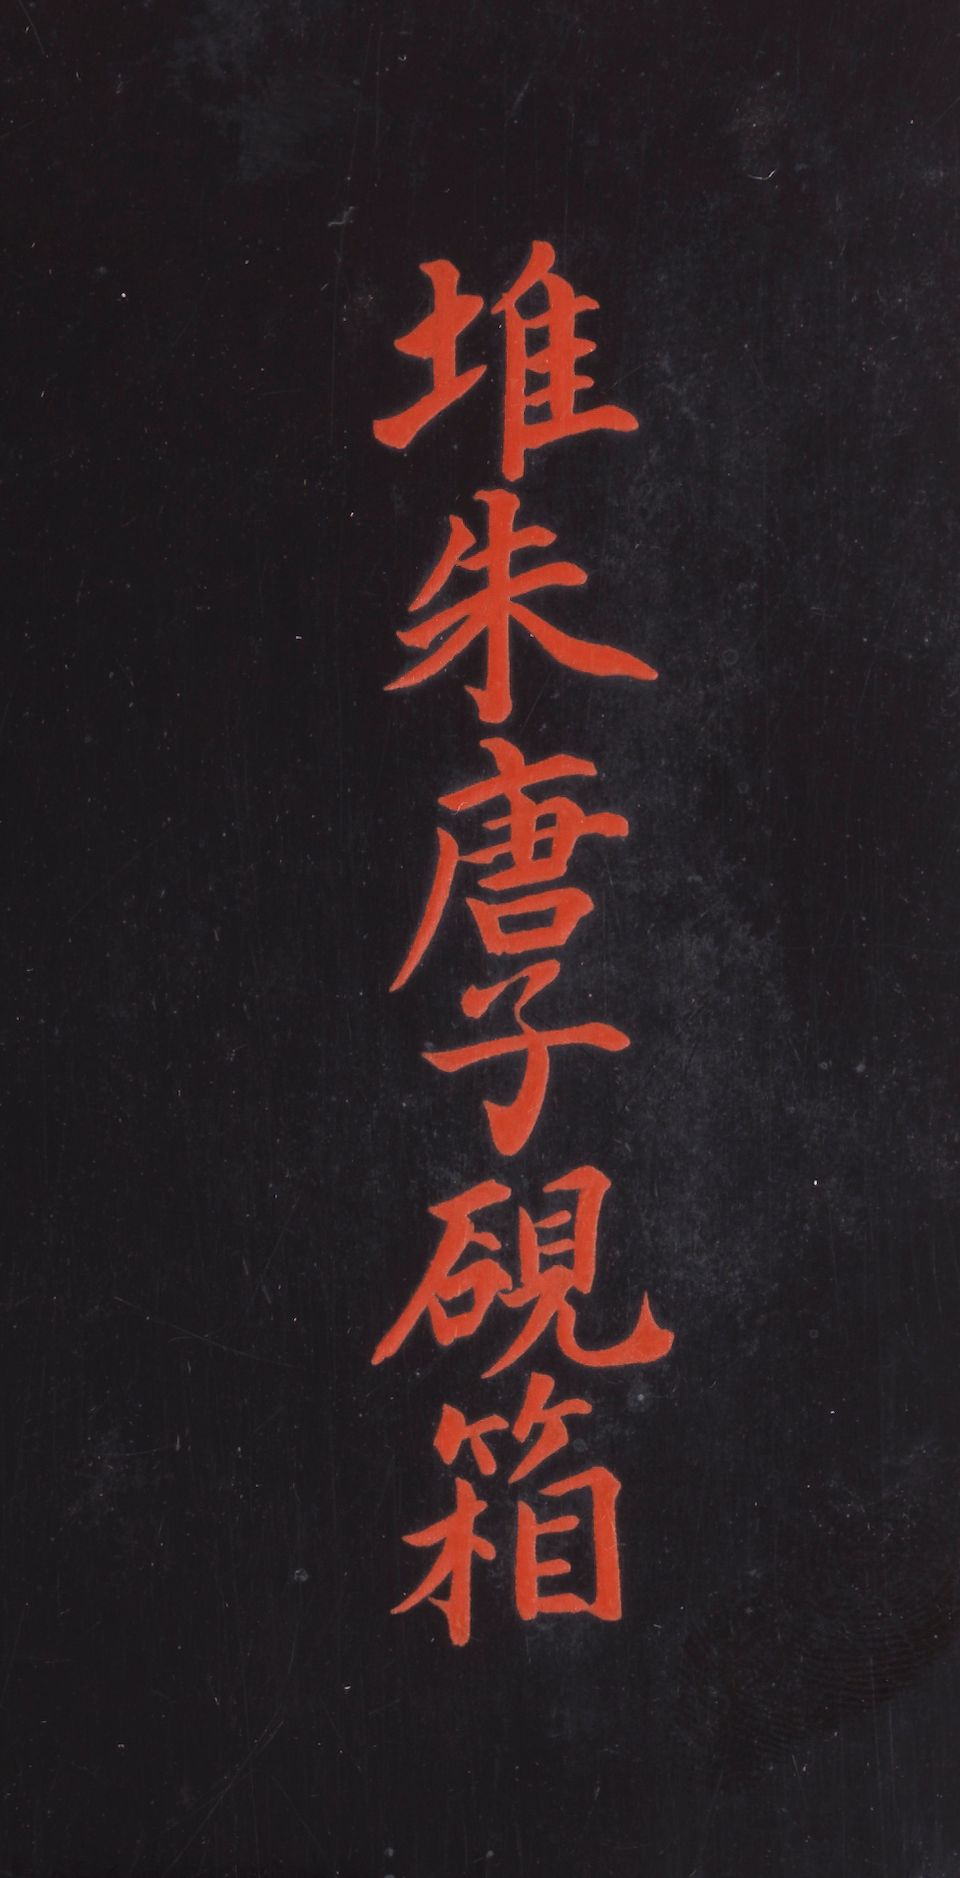 堆朱唐子硯箱